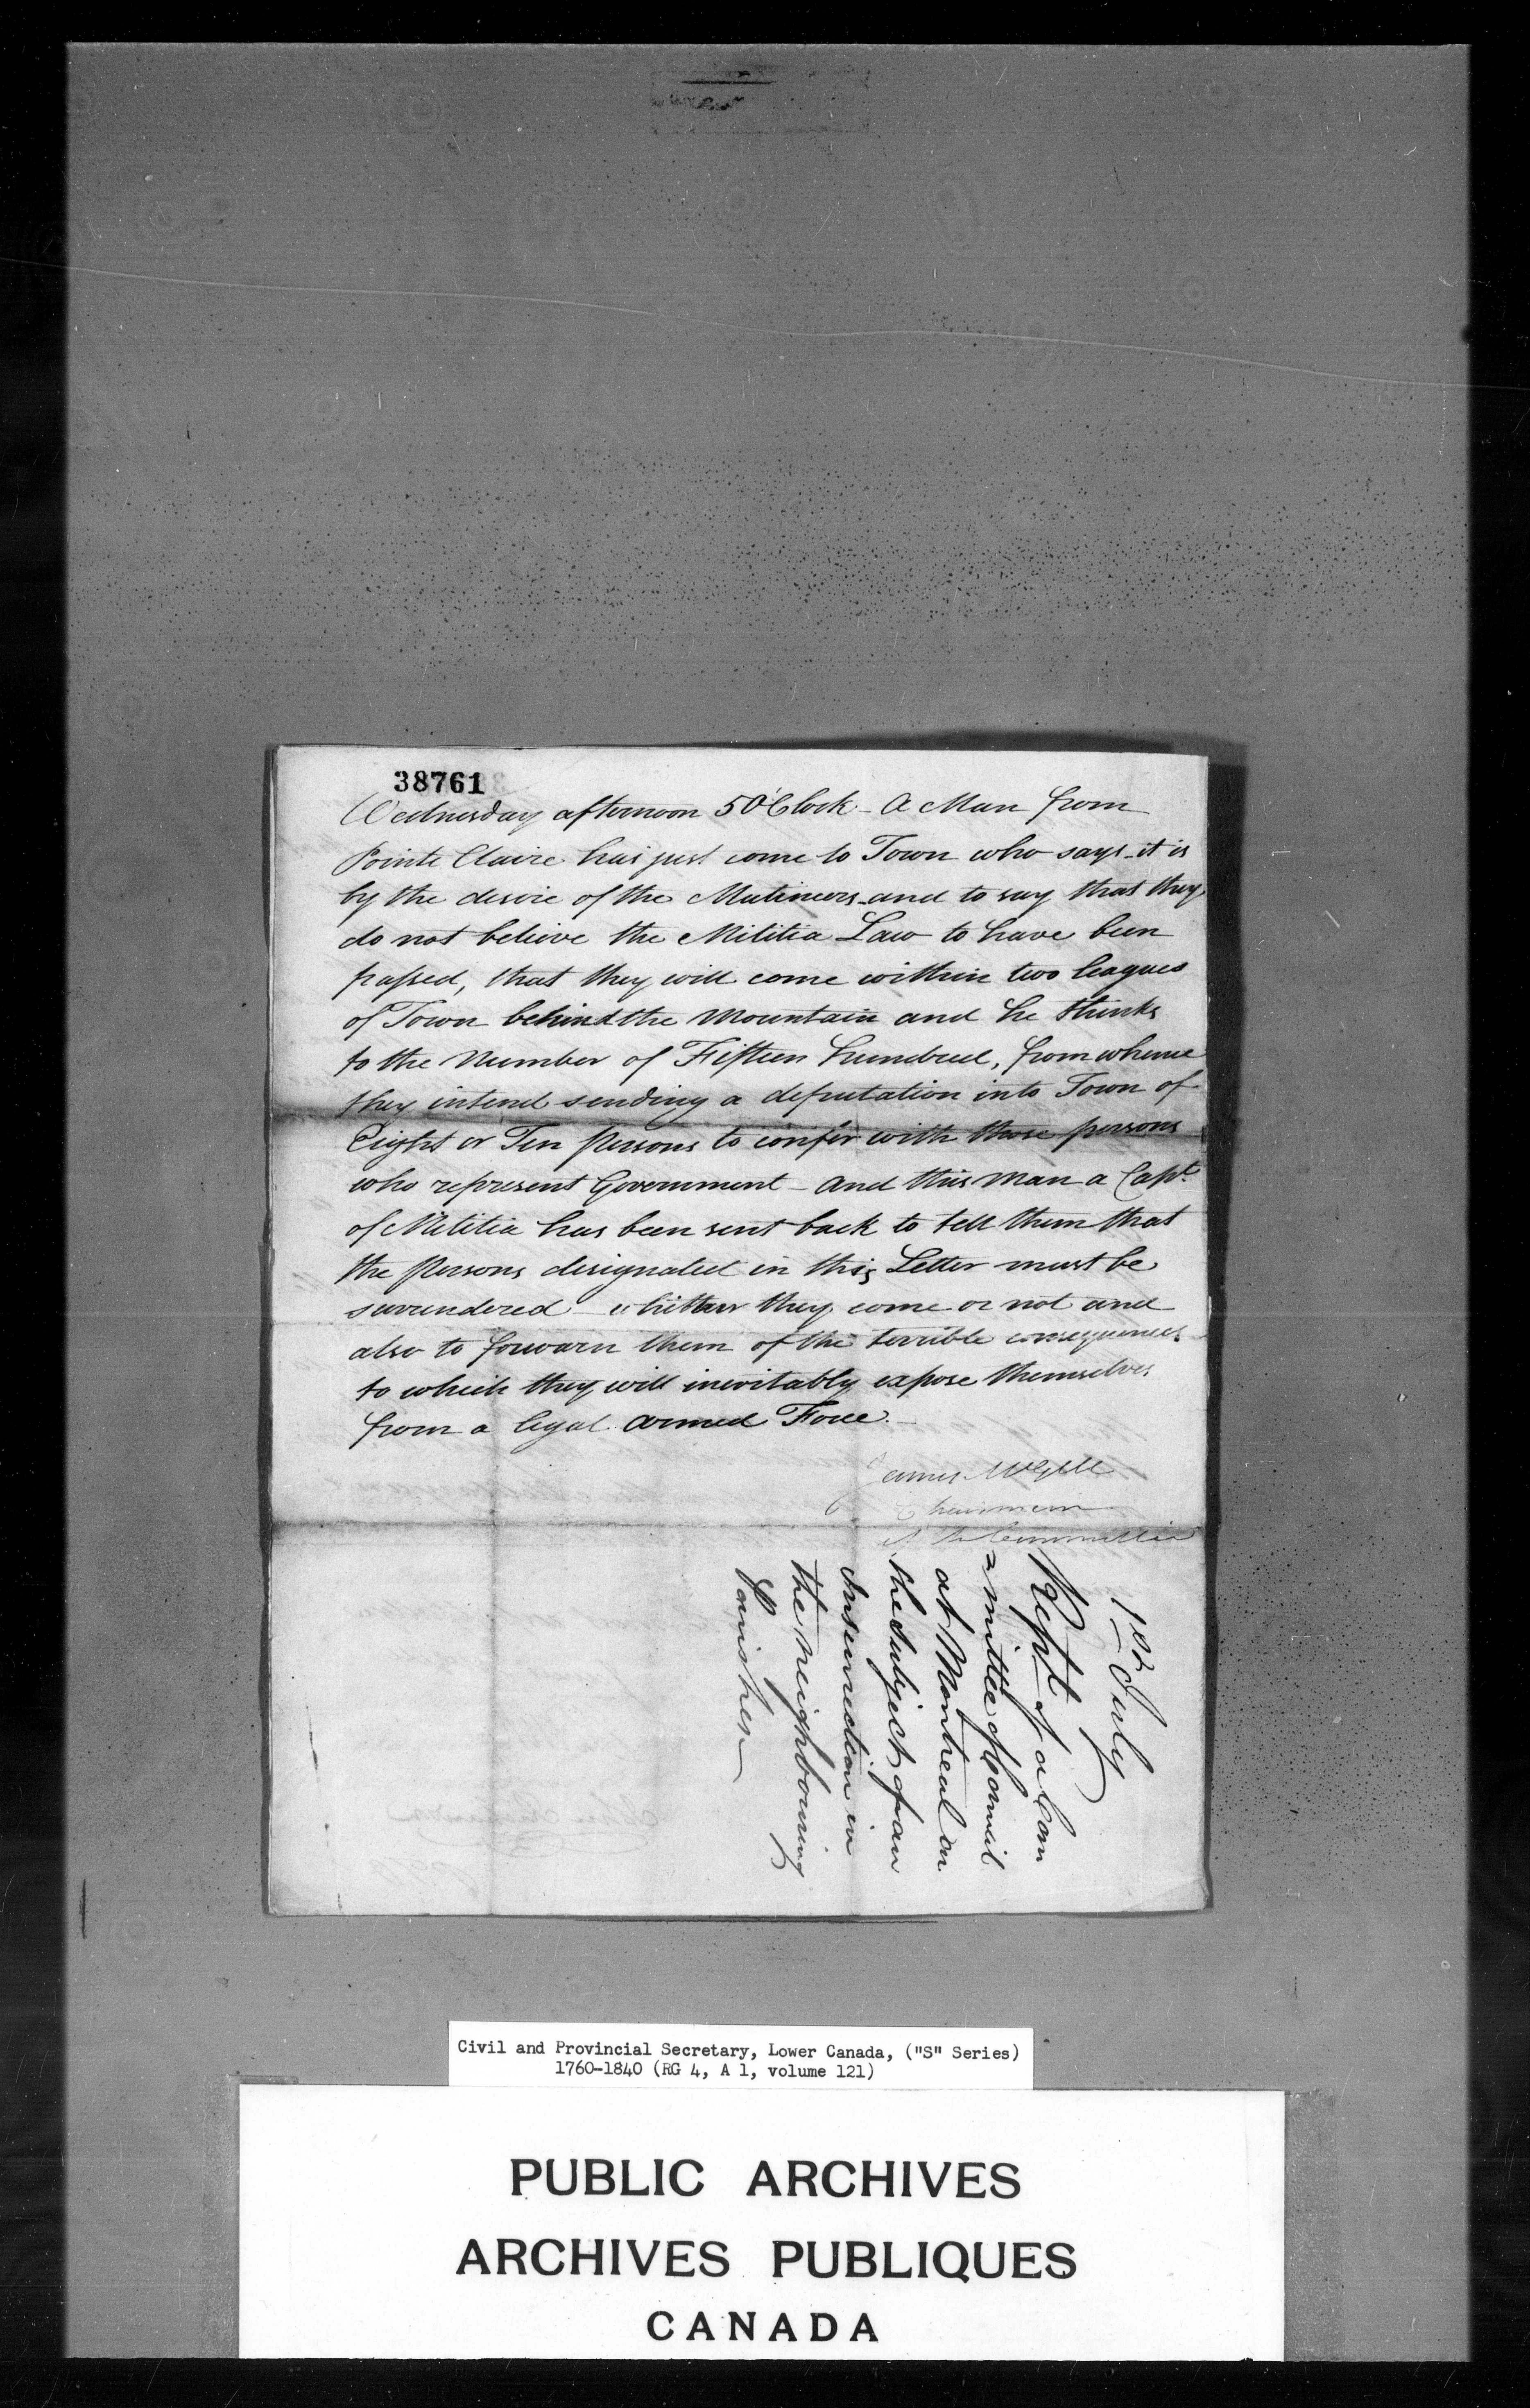 38761
Wednesday afternoon 5 O'Clock - A Man from
Pointe Claire has just come to Town who says it is
by the desire of the Mutineers and to say that they
do not believe the Militia Law to have been
passed, that they will come within two leagues
of Town behind the Mountain and he thinks
to the Number of Fifteen hundred, from whence
they intend sending a deputation into Town of
Eight or Ten Persons to confer with those persons
who represent Government - And this Man a Capt
of Militia has been sent back to tell them that
the Persons designated in this Letter must be
surrendered whither they come or not and
also to forwarn them of the terrible consequences
to which they will inevitably expose themselves
from a legal armed Force. -
James McGill
Chairman
Committee
1st July
Rept of a Com
mittee of Council
at Montreal on
the subject of an
Insurrection in
the neighbouring
Parishes
Civil and Provincial Secretary, Lower Canada, ("S" Series)
1760-1840 (RG 4, A 1, volume 121)
PUBLIC ARCHIVES
ARCHIVES PUBLIQUES
CANADA